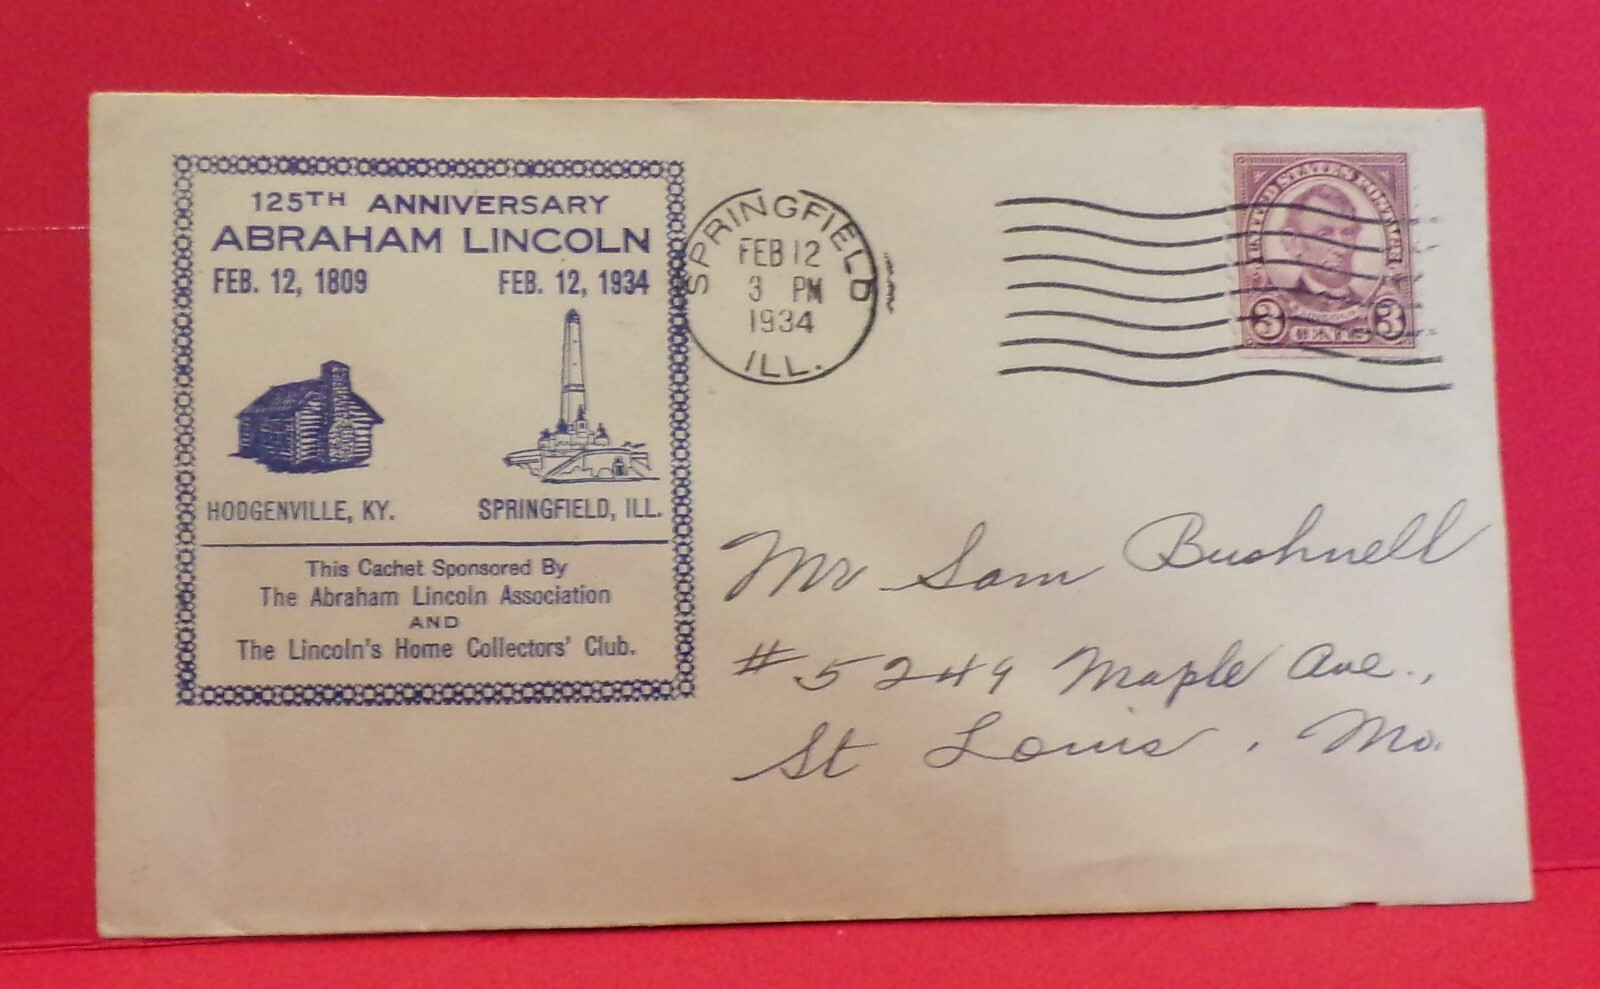 125TH ANNIVERSARY
ABRAHAM LINCOLN
FEB. 12, 1809 FEB. 12, 1934
HODGENVILLE, KY. SPRINGFIELD, ILL.
This Cachet Sponsored By
The Abraham Lincoln Association
AND
The Lincoln's Home Collectors' Club.
SPRINGFIELD
FEB 12
3 PM
1934
ILL.
UNITED STATES POSTAGE
LINCOLN
3 CENTS 3
Mr Sam Bushnell
# 5249 Maple Ave.,
St Louis, Mo.